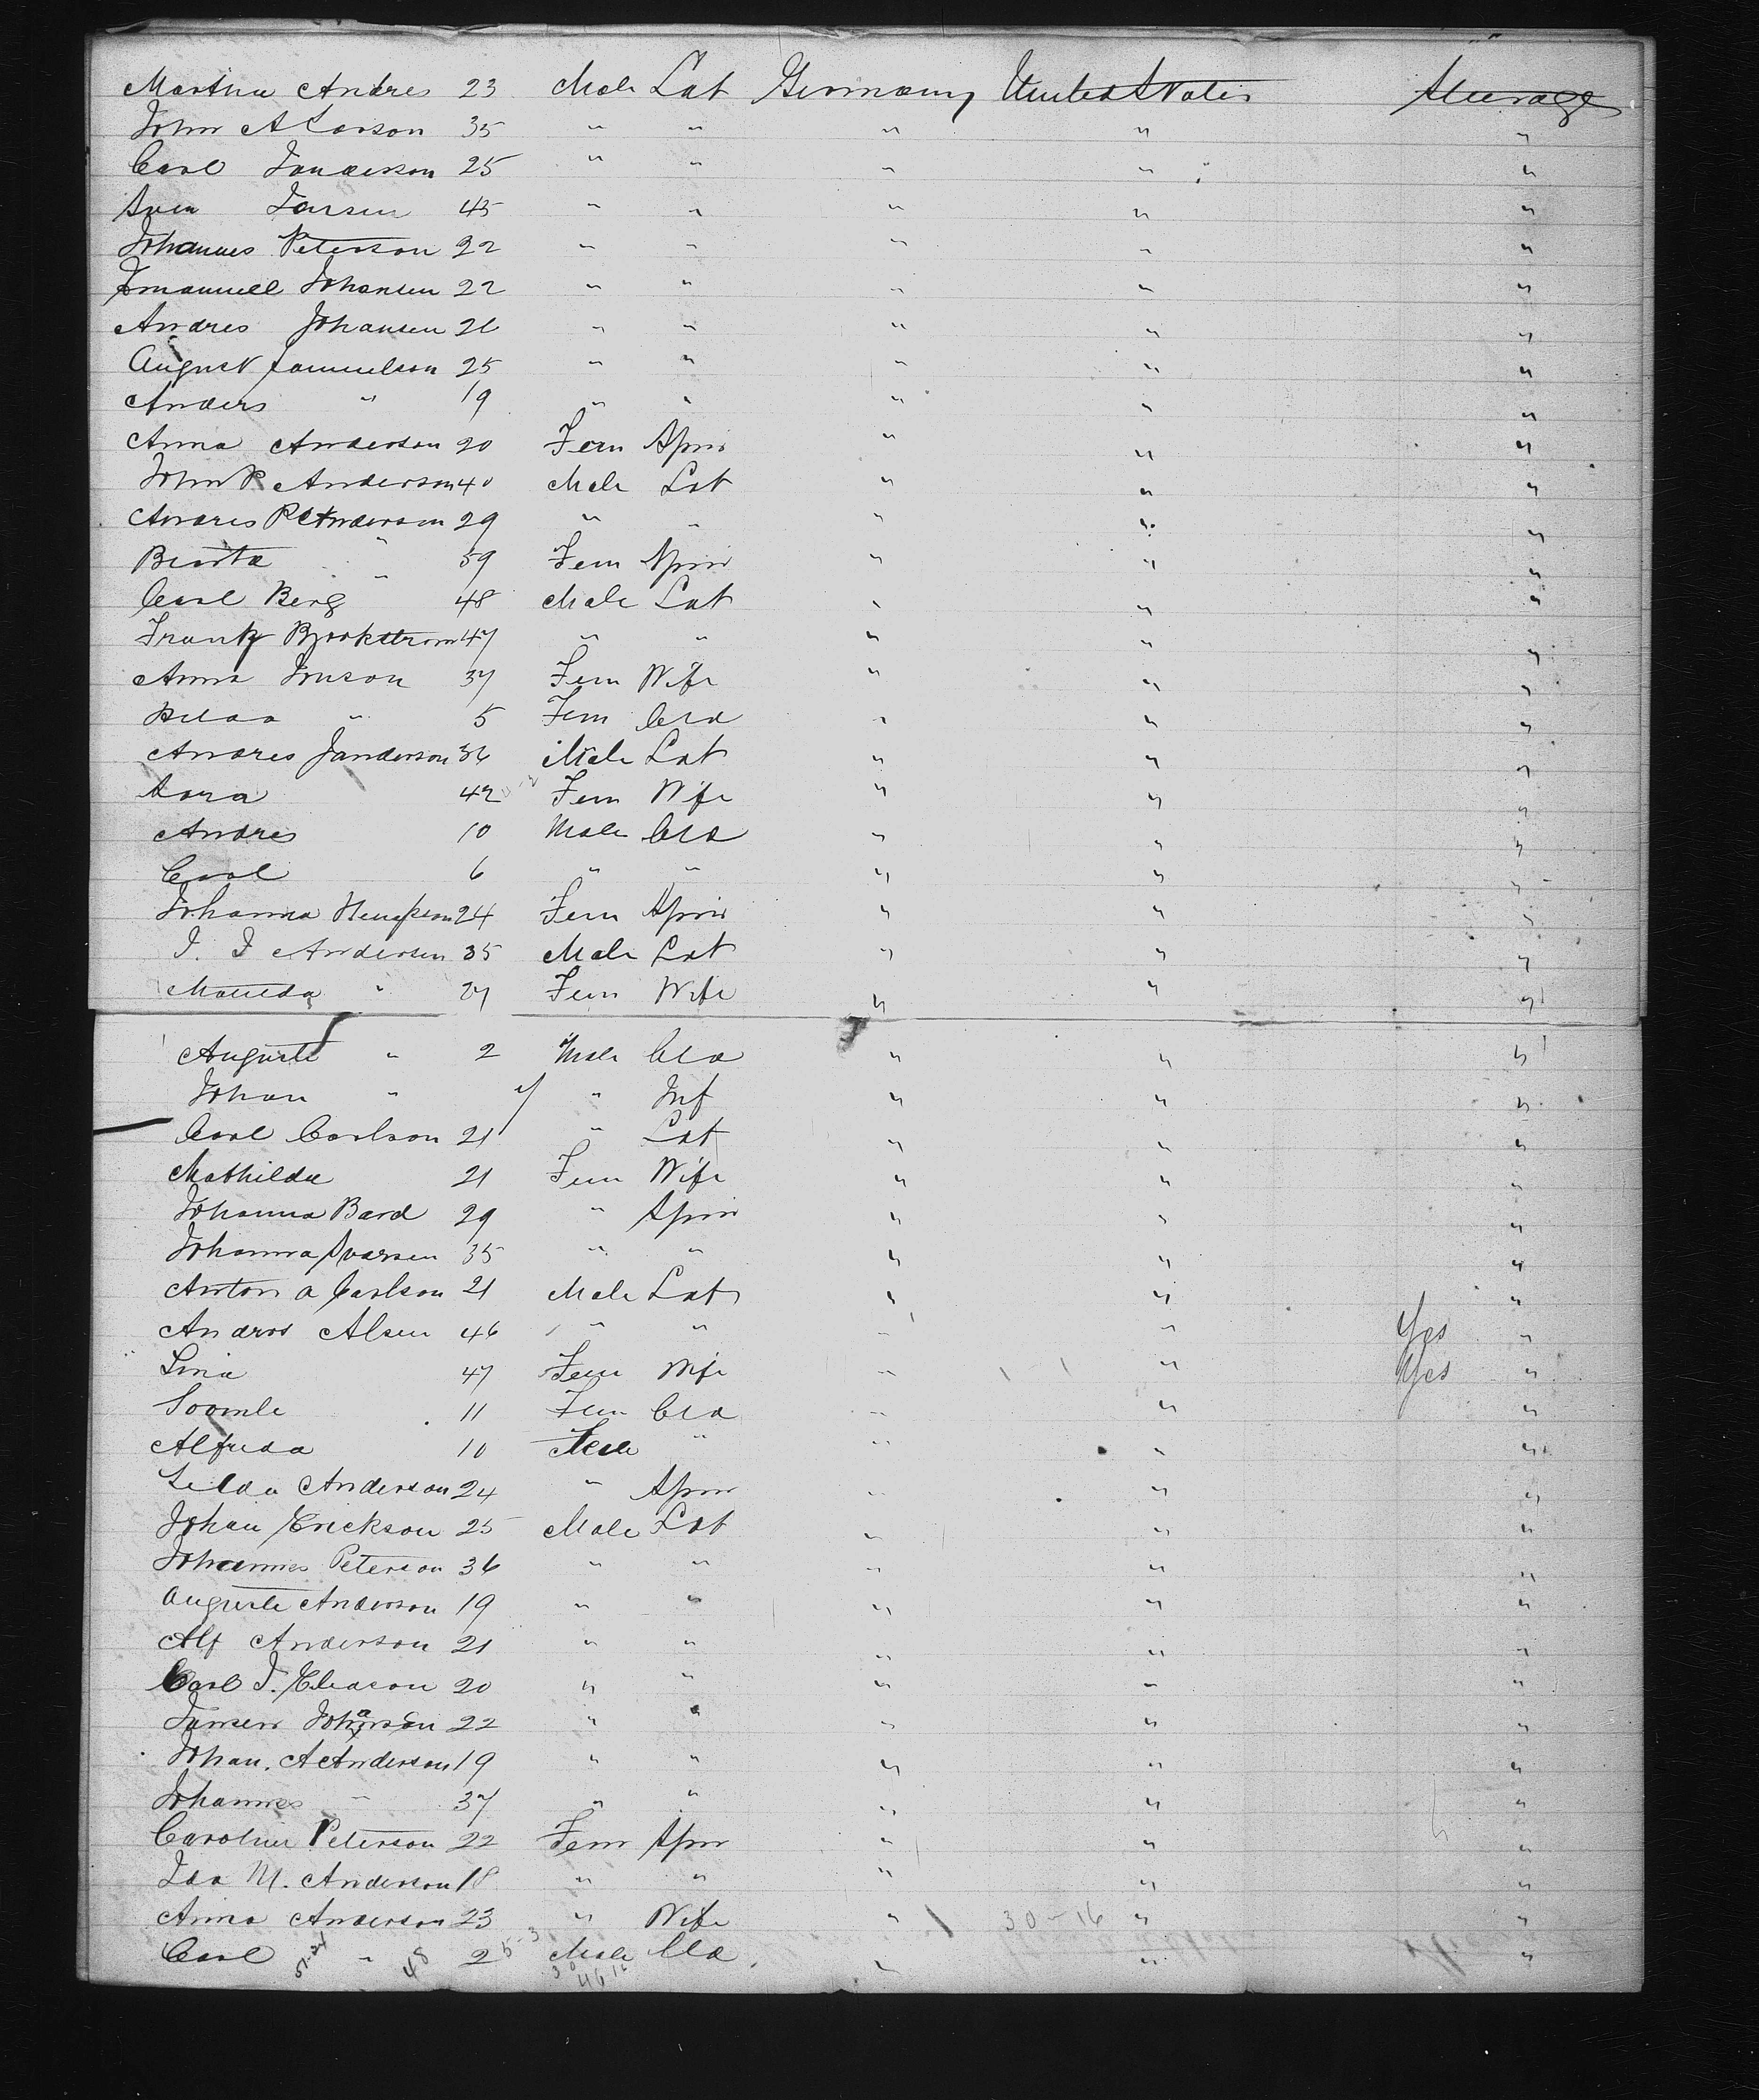 Martin Andres 23 Male Lab Germany United States Steerage
John A Larson 35 " " " " "
Carl Janderson 25 " " " " "
Sven Larsen 45 " " " " "
Johannes Peterson 22 " " " " "
Emanuell Johansen 22 " " " " "
Andres Johansen 26 " " " " "
August Samuelson 25 " " " " "
Anders " 19 " " " " "
Anna Anderson 20 Fem Spin " " "
John P. Anderson 40 Male Lab " " "
Andres P Anderson 29 " " " " "
" 59 Fem Spin " " "
Carl Berg " 48 Male Lab " " "
Frank 47 " " " " "
Anna Jonson 37 Fem Wife " " "
Hilda " 5 Fem Cld " " "
Andres Janderson 36 Male Lab " " "
Sara 42 Fem Wife " " "
Andres 10 Male Cld " " "
Carl 6 " " " " "
Johanna 24 Fem Spin " " "
J. J Andersen 35 Male Lab " " "
Matilda " 27 Fem Wife " " "
Auguste " 2 Male Cld " " "
Johan " " Inf " " "
Carl Carlson 21 " Lab " " "
Mathilda 21 Fem Wife " " "
Johanna Bard 29 " Spin " " "
Johanna Ivarsen 35 " " " " "
Anton A Carlson 21 Male Lab " " "
Andros Alsen 46 " " " " Yes "
Lina 47 Fem Wife " " Yes "
11 Fem Cld " " "
Alfreda 10 " " " "
Selda Anderson 24 " Spin " " "
Johan Erickson 25 Male Lab " " "
Johannes Peterson 36 " " " " "
Auguste Anderson 19 " " " " "
Alf Anderson 21 " " " " "
Carl J. Eleason 20 " " " " "
Jansen Johanson 22 " " " " "
Johan. A Anderson 19 " " " " "
Johannes " 37 " " " " "
Caroline Peterson 22 Fem Spin " " "
Ida M. Anderson 18 " " " " "
Anna Anderson 23 " Wife " 30-16 " "
Carl " 48 2 Male Cld " " "